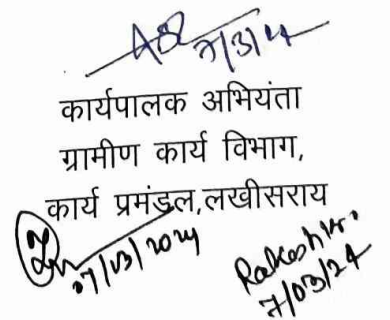 7/3/24
कार्यपालक अभियंता
ग्रामीण कार्य विभाग,
कार्य प्रमंडल,लखीसराय
07/03/2024
Rakesh Kr.
7/03/24